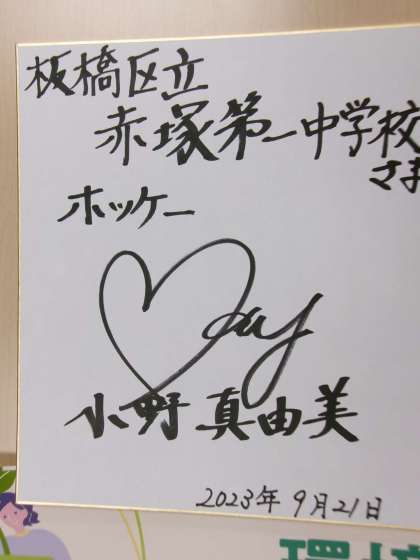 板橋区立
赤塚第一中学校
さま
ホッケー
May
小野真由美
2023年9月21日
環